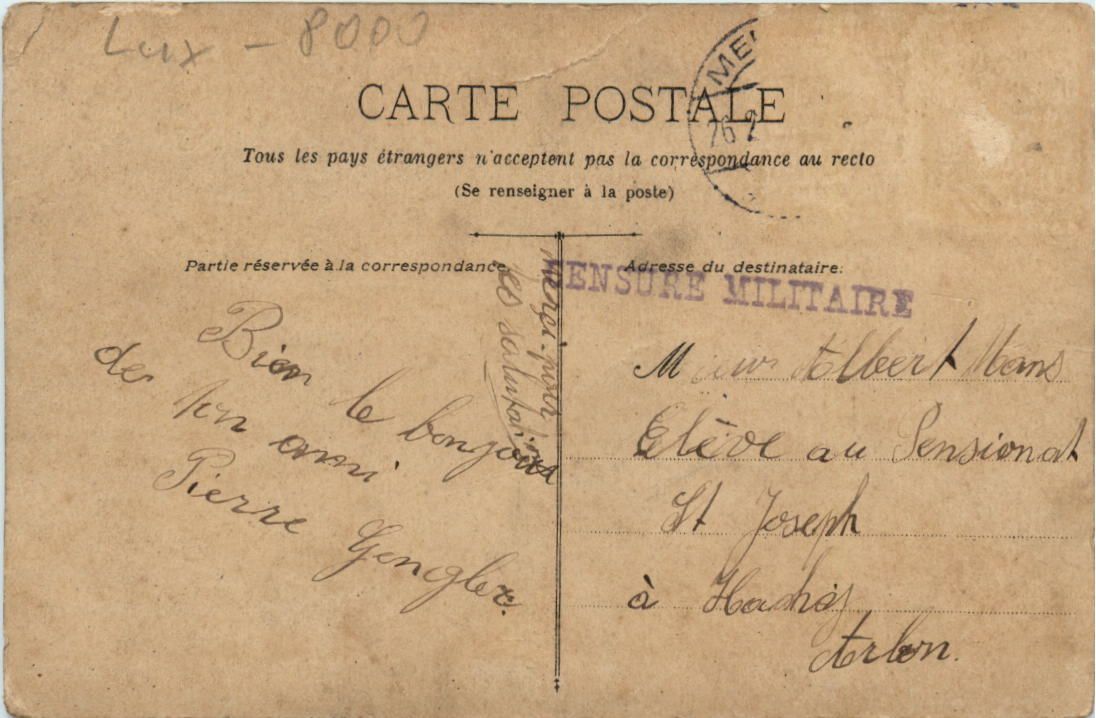 Lux - 8000
CARTE POSTALE
ME
26 2
Tous les pays étrangers n'acceptent pas la correspondance au recto
(Se renseigner à la poste)
Partie réservée à la correspondance
Adresse du destinataire:
CENSURE MILITAIRE
Merci pour
les salutations
Bien le bonjour
de ton ami
Pierre Gengler.
Albert
Elève au Pensionat
St Joseph
à Hachy
Arlon.